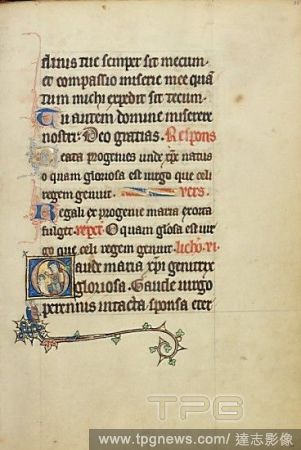 ssinus tue semper sit mecum
et compassio miserie mee quā
tum michi expedit sit tecum.
Tu autem domine miserere
nostri. Deo gratias. Respons
Beata progenies unde xp̄c natus
o quam gloriosa est uirgo que celi
regem genuit. vers.
Regali ex progenie maria exorta
fulget. repet. O quam gl̄osa est uir
go que celi regem genuit. lectio. vi.
Gaude maria xp̄i genitrix
gloriosa. Gaude uirgo
perennis intacta sponsa eter
TPG
www.tpgnews.com/達志影像